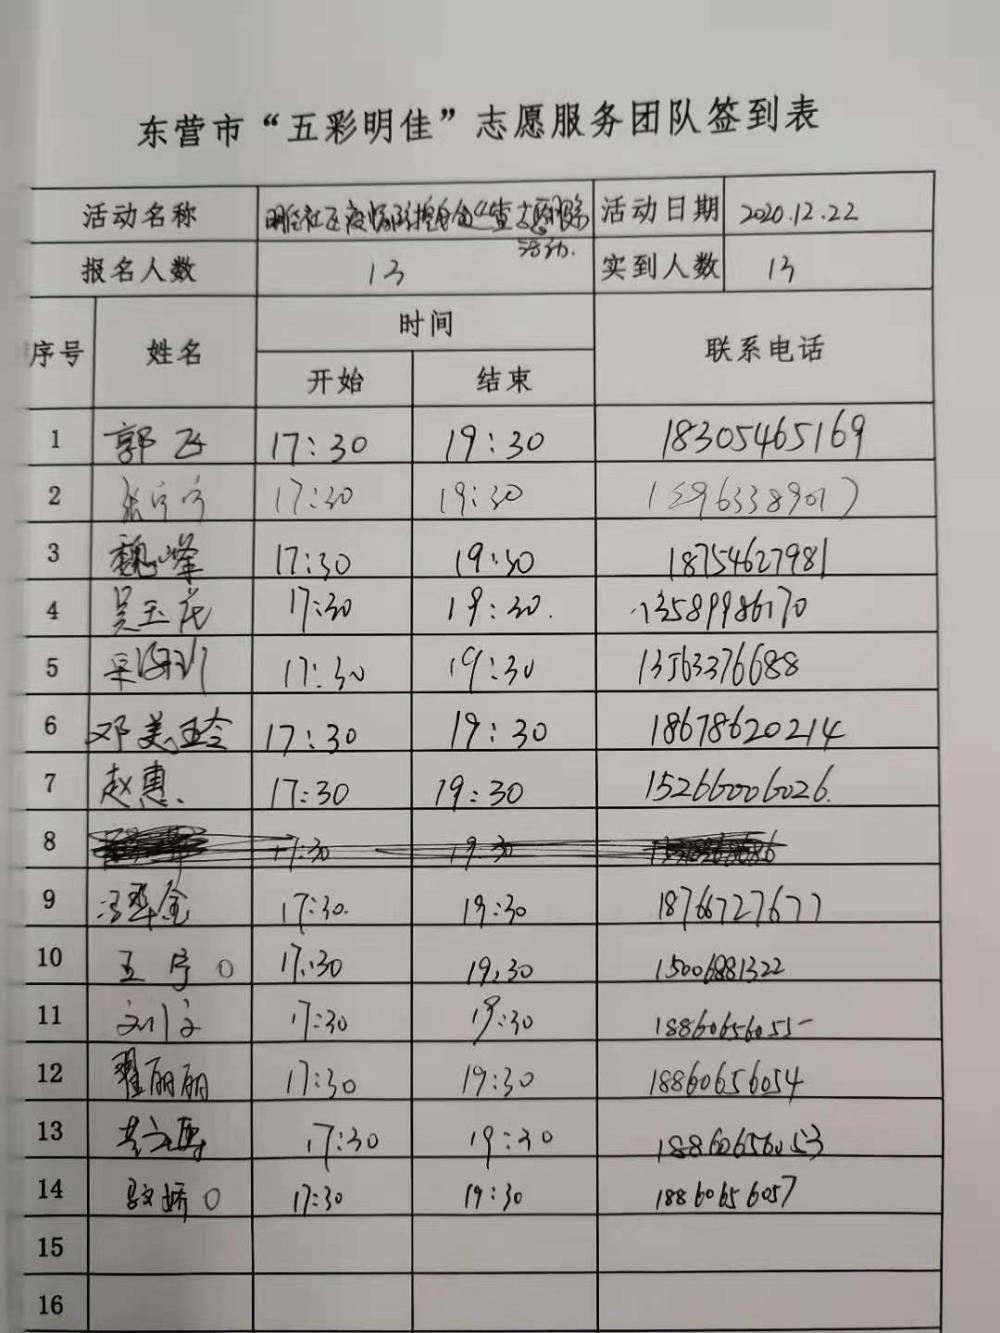 东营市“五彩明佳”志愿服务团队签到表
活动名称 社区疫情防控 志愿服务 活动日期 2020.12.22
活动.
报名人数 13 实到人数 13
序号 姓名 时间 联系电话
开始 结束
1 郭飞 17:30 19:30 18305465169
2 张宁宁 17:30 19:30 15963389017
3 魏峰 17:30 19:30 18754627981
4 吴玉花 17:30 19:30. 13589986170
5 17:30 19:30 13563376688
6 邓美玲 17:30 19:30 18678620214
7 赵惠. 17:30 19:30 15266006026.
8 17:30 19:30
9 冯翠金 17:30. 19:30 18766727677
10 王宁 17:30 19:30 15006881322
11 刘文 17:30 19:30 18860656055
12 翟丽丽 17:30 19:30 18860656054
13 17:30 19:30 18860656053
14 17:30 19:30 18860656057
15
16